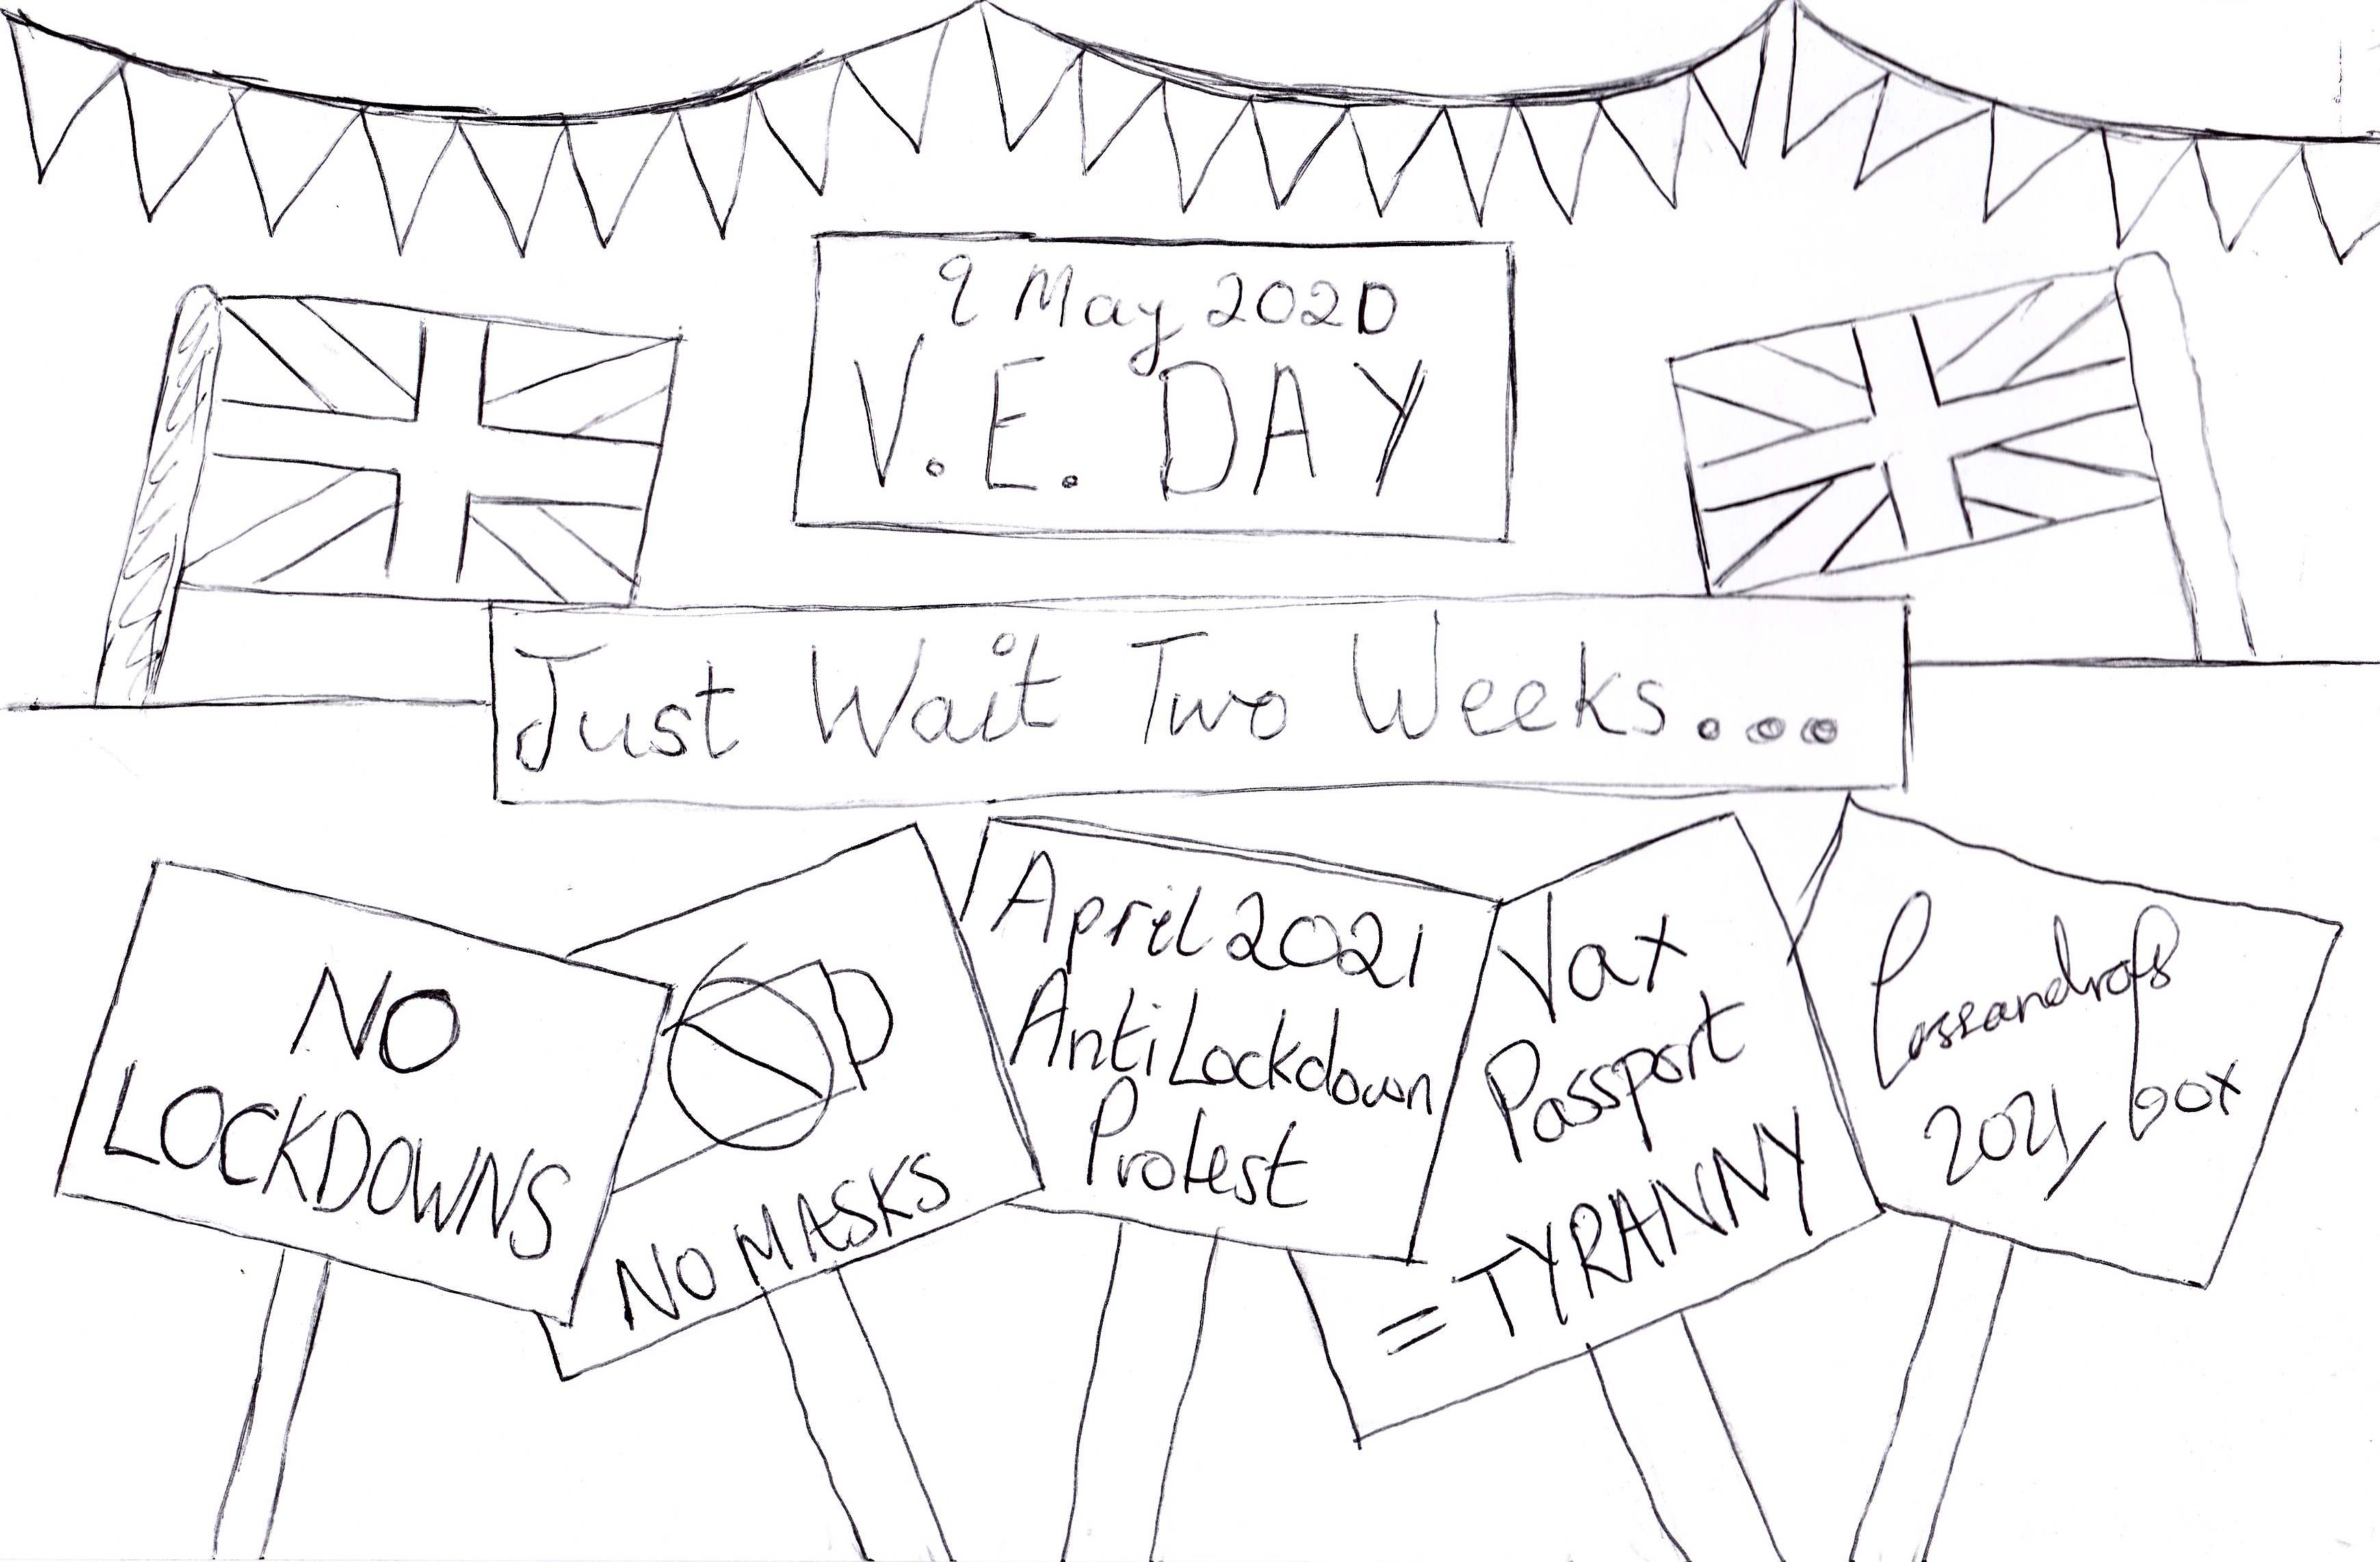 9 May 2020
V.E. DAY
Just Wait Two Weeks...
NO
LOCKDOWNS
NO MASKS
April 2021
Anti Lockdown
Protest
Vax
Passport
= TYRANNY
Cassandra's
box
2021